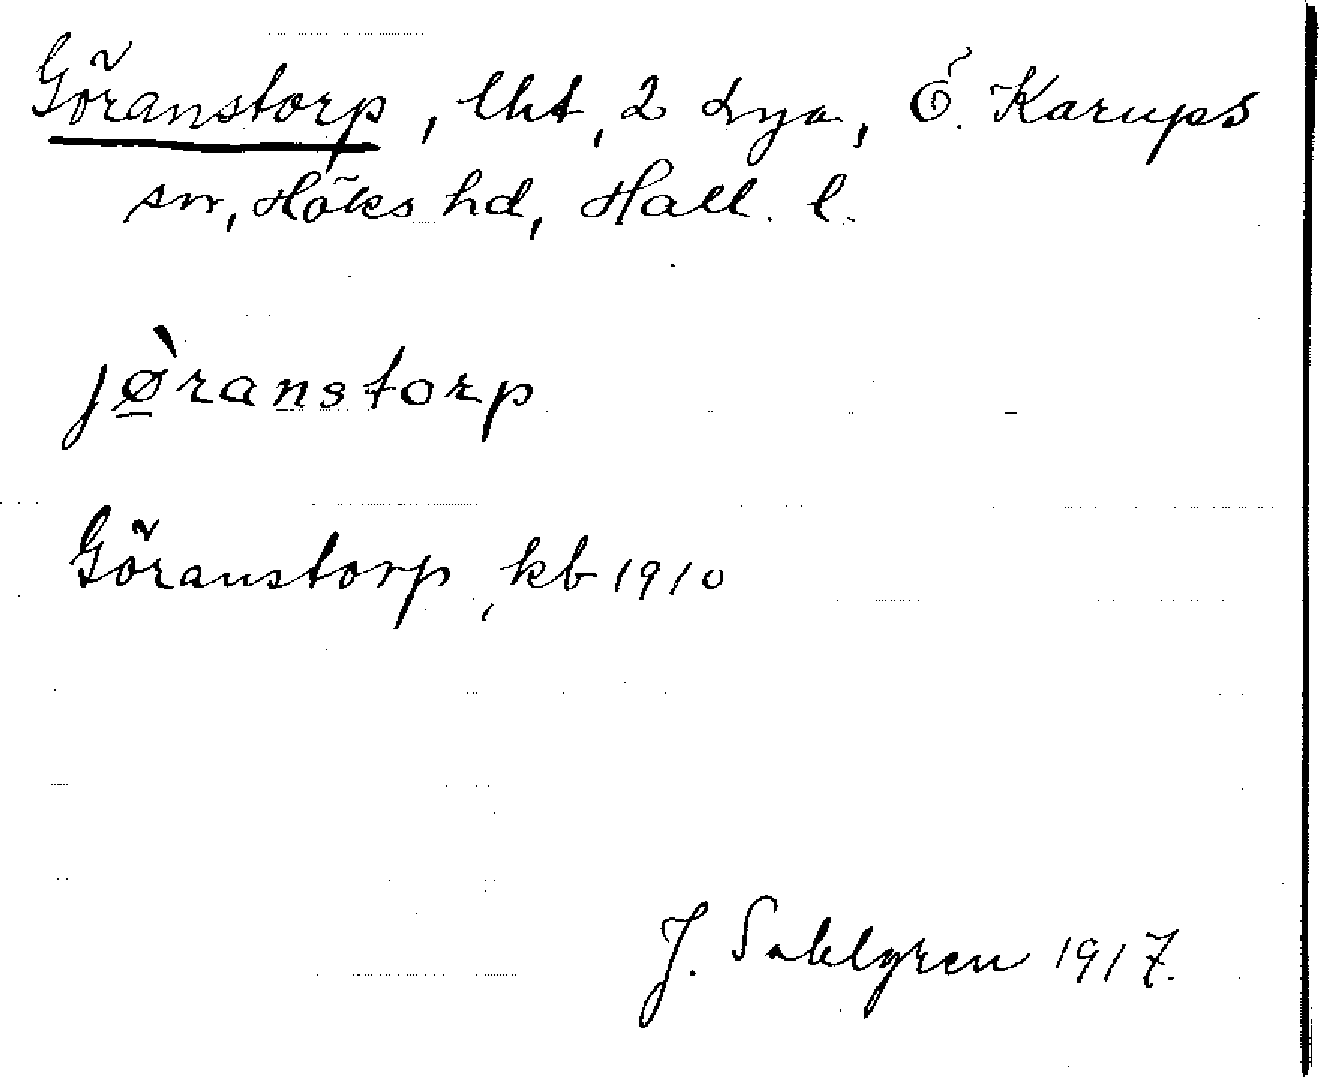 Göranstorp, lht, 2 Lya, Ö. Karups
sn, Höks hd, Hall. l.
jø̀ranstorp
Göranstorp, kb 1910
J. Sahlgren 1917.